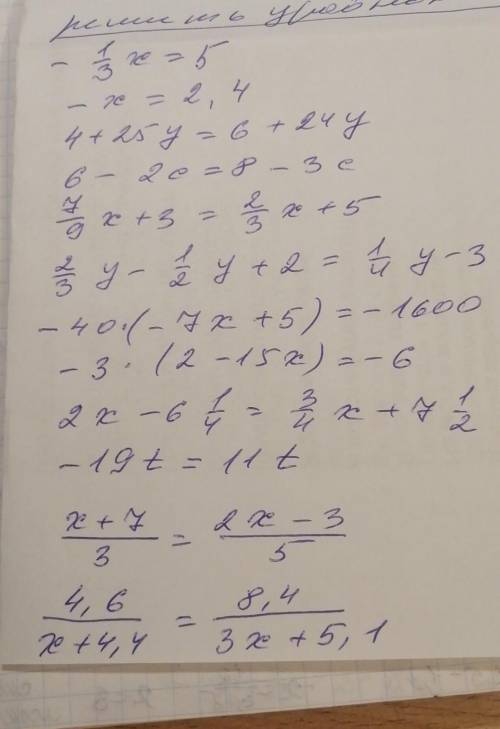 решить уравнен
- 1/3 x = 5
- x = 2,4
4 + 25y = 6 + 24y
6 - 2c = 8 - 3c
7/9 x + 3 = 2/3 x + 5
2/3 y - 1/2 y + 2 = 1/4 y - 3
- 40 · (- 7x + 5) = - 1600
- 3 · (2 - 15x) = - 6
2x - 6 1/4 = 3/4 x + 7 1/2
- 19t = 11t
(x + 7)/3 = (2x - 3)/5
4,6/(x + 4,4) = 8,4/(3x + 5,1)